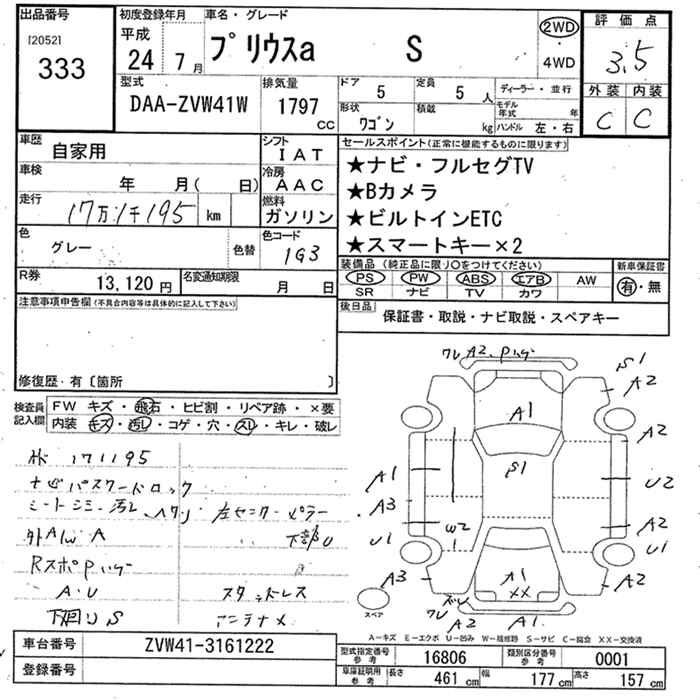 出品番号
[2052]
333
初度登録年月
平成
24年 7月
車名・グレード
プリウスa S
2WD
4WD
評価点
3.5
外装 内装
C C
型式
DAA-ZVW41W
排気量
1797
CC
ドア
5
定員
5 人
形状
ワゴン
積載
kg
ディーラー・並行
モデル年式 年
ハンドル 左・右
車歴
自家用
シフト
IAT
車検
年 月( 日)
冷房
AAC
走行
17万1千195 km
燃料
ガソリン
色
グレー
色替
色コード
1G3
R券
13,120 円
名変通知期限
月 日
セールスポイント(正常に機能するものに限ります)
★ナビ・フルセグTV
★Bカメラ
★ビルトインETC
★スマートキー×2
装備品(純正品に限り○をつけてください)
PS PW ABS エアB AW
SR ナビ TV カワ
新車保証書
有・無
後日品
保証書・取説・ナビ取説・スペアキー
注意事項申告欄(不具合内容等は具体的に記入して下さい)
修復歴・有〔箇所 〕
検査員記入欄
FW キズ・飛石・ヒビ割・リペア跡・×要
内装 キズ・汚レ・コゲ・穴・スレ・キレ・破レ
171195
ナビパスワードロック
シートシミ・汚レ・ヘタリ
左センターピラー
下部U
外AIW A
RスポPハゲ
A・U
スタッドレス
下廻りS
アンテナメ
ワレ A2 Pハゲ
S1
A2
A1
A2
S1
A1
U2
A3
W2
A2
U1
1
U1
A3
A1
XX
A2
スペア
ワレ
A2
A1
A-キズ E-エクボ U-凹み W-補修跡 S-サビ C-腐食 XX-交換済
車台番号
ZVW41-3161222
登録番号
型式指定番号 参考
16806
類別区分番号 参考
0001
車庫証明用 参考
長さ 461 cm
幅 177 cm
高さ 157 cm